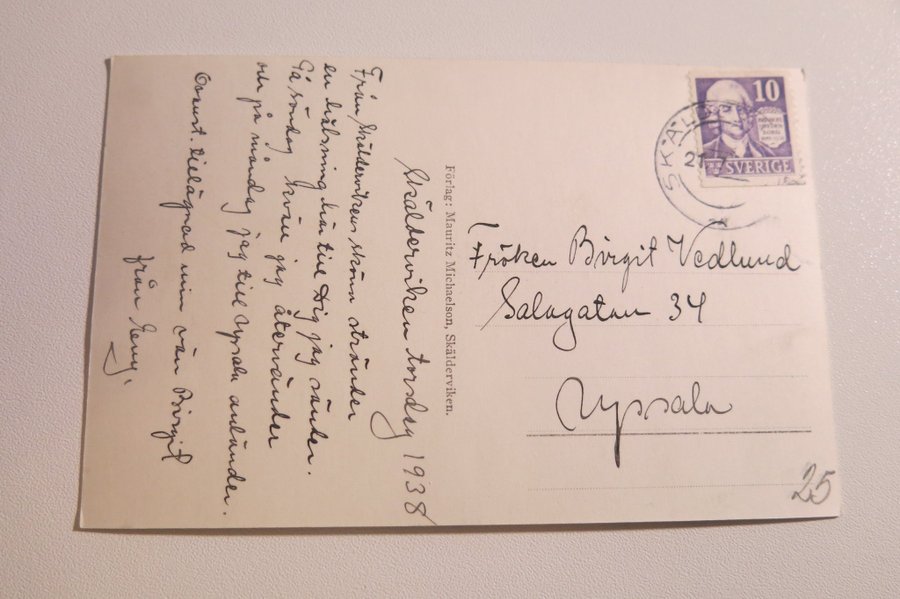 Skälderviken torsdag 1938
Från Skäldervikens skönn stränder
en hälsning här till Dig jag sänder.
På söndag kväll jag återvänder
och på måndag jag till Upsala anländer.
Ovanst. tillägnad min vän Birgit
från
Förlag: Mauritz Michaelson, Skälderviken.
10
SVERIGE
SKÄLD
21.7
Fröken Birgit Vedlund
Salagatan 34
Upsala
25